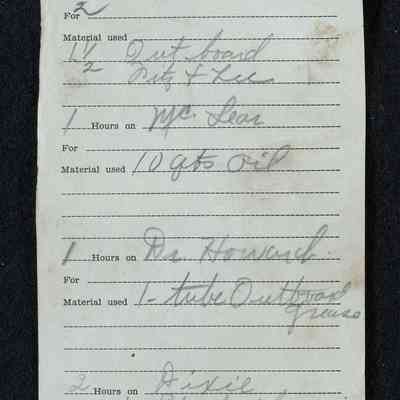 For 2
Material used
1 1/2 Out board
Fitz + Lee
1 Hours on Mc. Lear
For
Material used 10 qts oil
1 Hours on Dr. Howard
For
Material used 1 - tube Outboard
grease
2 Hours on Dixie